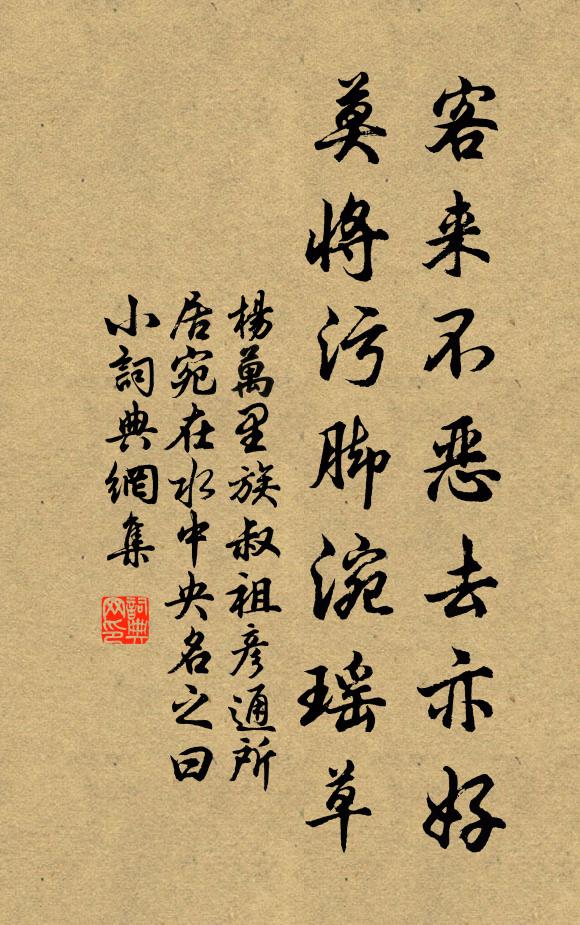 客来不恶去亦好
莫将污脚涴瑶草
楊萬里族叔祖彦通所
居宛在水中央名之曰
小詞典網集
詞典网印